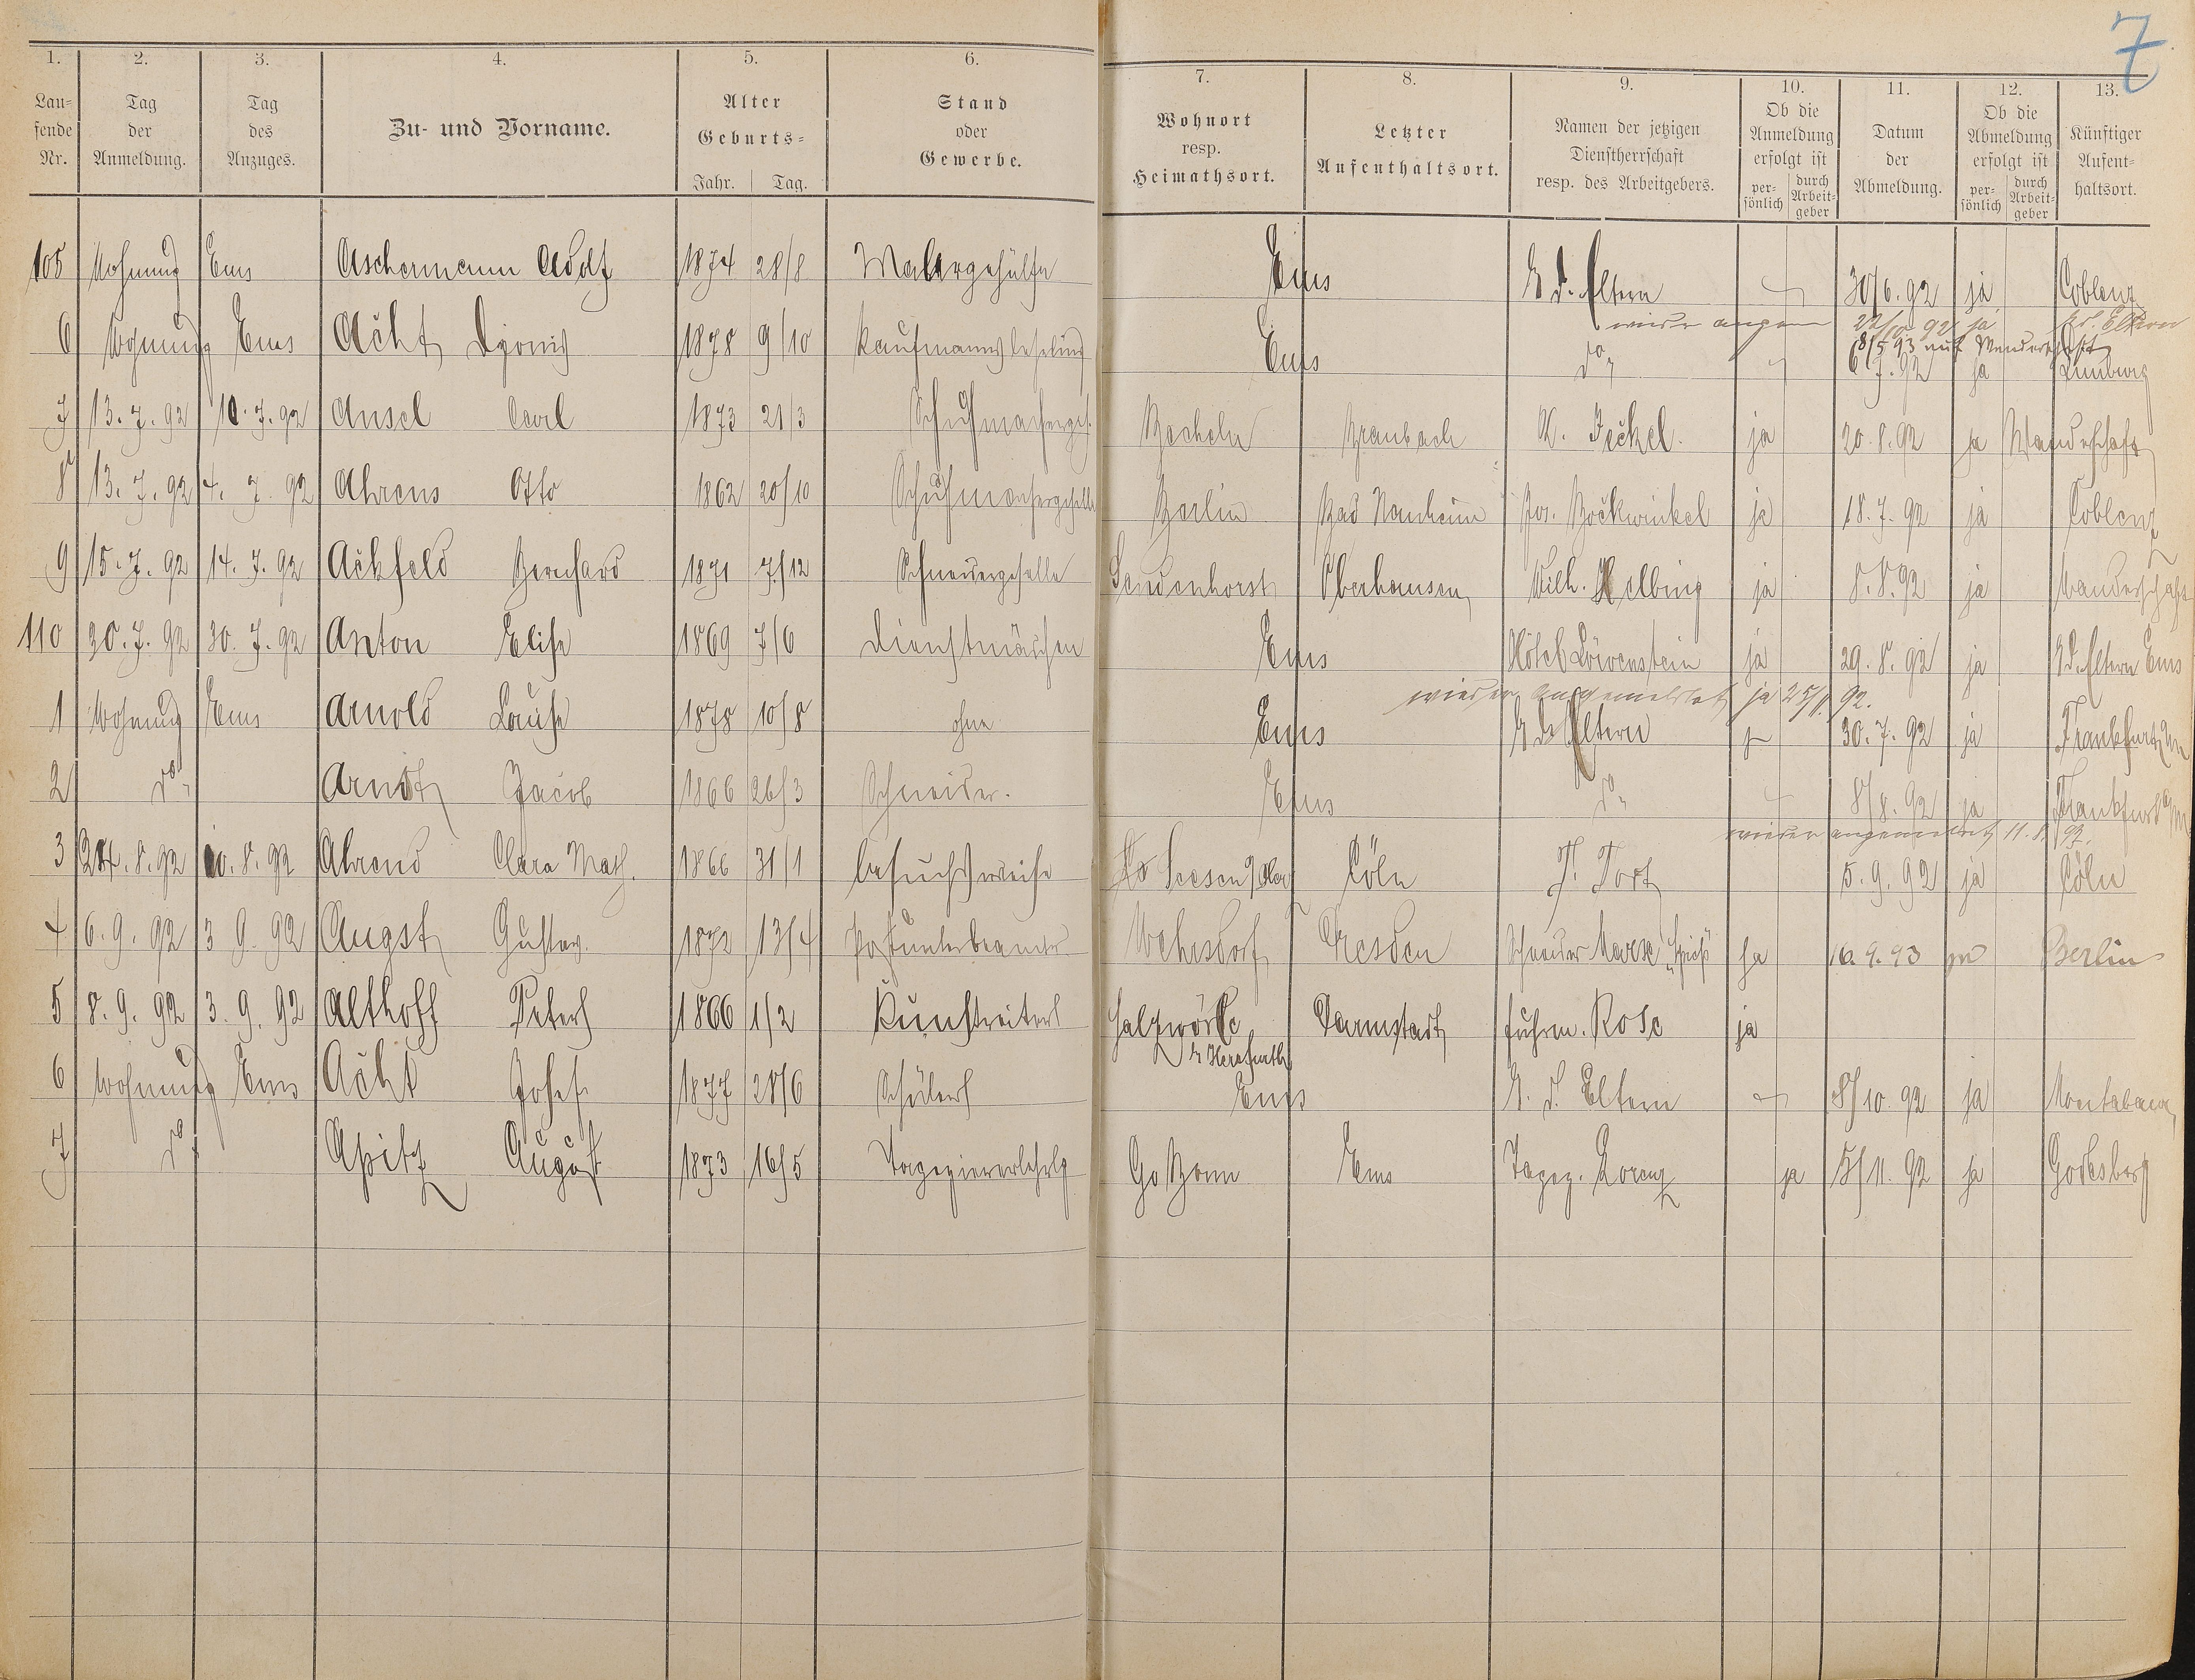 7
1. 2. 3. 4. 5. 6. 7. 8. 9. 10. 11. 12. 13.
Laufende Nr. Tag der Anmeldung. Tag des Anzuges. Zu- und Vorname. Alter Geburts= Jahr. Tag. Stand oder Gewerbe. Wohnort resp. Heimathsort. Letzter Aufenthaltsort. Namen der jetzigen Dienstherrschaft resp. des Arbeitgebers. Ob die Anmeldung erfolgt ist persönlich durch Arbeitgeber Datum der Abmeldung. Ob die Abmeldung erfolgt ist persönlich durch Arbeitgeber Künftiger Aufenthaltsort.
105 Wohnung Ems Aschermann Adolf 1874 28/8 Malergehülfe Ems b. d. Eltern 30/6. 92 ja Coblenz
wieder angem 22/10. 92 ja Eltern
18/5 93 auf Wanderschaft
6 Wohnung Ems Acht Dyonis 1878 9/10 Kaufmannslehrling Ems do 6. 7. 92 ja Limburg
7 13. 7. 92 10. 7. 92 Ansel Carl 1873 21/3 Schuhmacherges. Becheln Braubach K. Jeckel. ja 20. 8. 92 ja Wanderschaft
8 13. 7. 92 4. 7. 92 Ahrens Otto 1862 20/10 Schuhmachergeselle Berlin Bad Nauheim Jos. Bockwinkel ja 18. 7. 92 ja Coblenz
9 15. 7. 92 14. 7. 92 Ackfeld Bernhard 1871 7/12 Schneidergeselle Sendenhorst Oberhausen Wilh. Helbing ja 8. 8. 92 ja Wanderschaft
110 30. 7. 92 30. 7. 92 Anton Elise 1869 7/6 Dienstmädchen Ems Hôtel Löwenstein ja 29. 8. 92 ja b d. Eltern Ems
wieder angemeldet ja 92.
1 Wohnung Ems Arnold Louise 1878 10/8 ohne Ems b d Eltern 30. 7. 92 ja Frankfurt a/m
2 do Arndt Jacob 1866 26/3 Schneider. Ems do 8/8. 92 ja Frankfurt a/m
wieder angemeldet 11. 8. 92.
3 24. 8. 92 20. 8. 92 Ahrend Clara Math. 1866 31/1 besuchsweise Seesen Cöln 5. 9. 92 ja Cöln
4 6. 9. 92 3 9. 92 Augst Gustav. 1872 13/4 Postunterbeamter Wehrsdorf Dresden Schneider Marx ja 16. 9. 93 ja Berlin
5 8. 9. 92 3. 9. 92 Althoff Peter 1866 1/2 Kunstreiter Darmstadt Fuhrm. Rose ja
6 Wohnung Ems Acht Josef 1877 28/6 Schüler Ems b. d. Eltern 8/10. 92 ja Montabaur
7 do Apitz August 1873 16/5 Tapeziererlehrlg Bonn Ems Tapez. Lorenz ja 15/11. 92 ja Godesberg